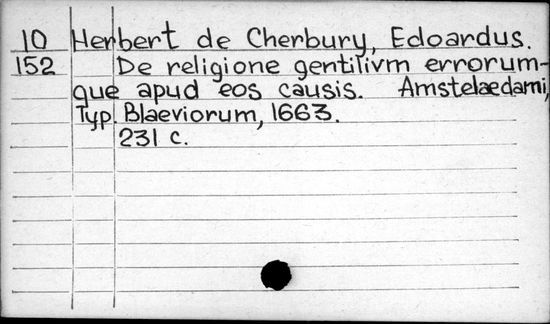 10 Herbert de Cherbury, Edoardus.
152 De religione gentilivm errorum-
que apud eos causis. Amstelaedami,
Typ. Blaeviorum, 1663.
231 c.